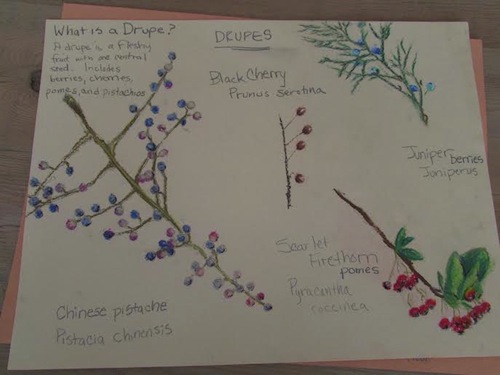 What is a Drupe?
A drupe is a fleshy
fruit with one central
seed. Includes
berries, cherries,
pomes, and pistachios
DRUPES
Black Cherry
Prunus serotina
Juniper berries
Juniperus
Scarlet
Firethorn
pomes
Pyracantha
coccinea
Chinese pistache
Pistacia chinensis